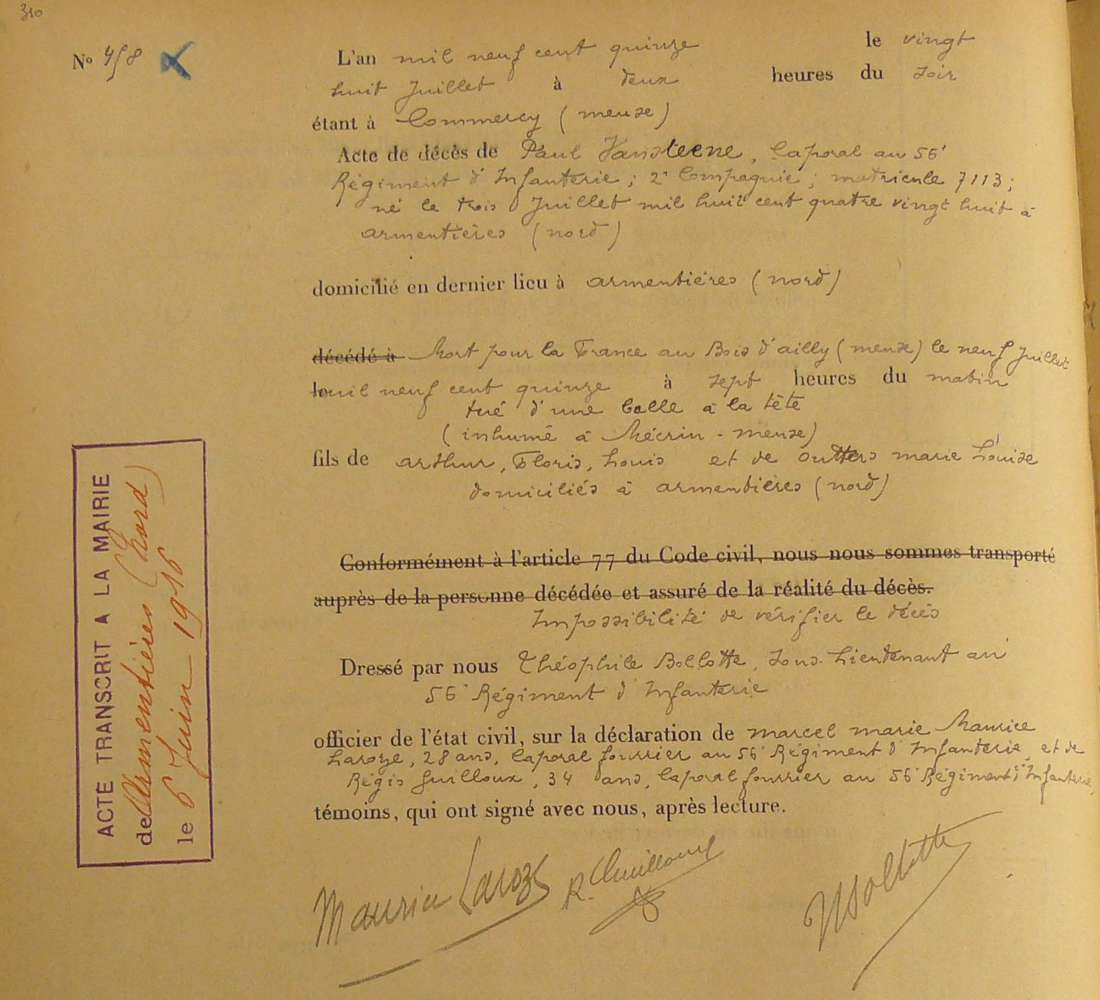 310
N° 458
L'an mil neuf cent quinze le vingt
huit Juillet à deux heures du soir
étant à Commercy (meuse)
Acte de décès de Paul Vansteene, Caporal au 56e
Régiment d'Infanterie; 2e Compagnie; matricule 7113;
né le trois Juillet mil huit cent quatre vingt huit à
armentières (nord)
domicilié en dernier lieu à armentières (nord)
décédé à Mort pour la France au Bois d'ailly (meuse) le neuf Juillet
le mil neuf cent quinze à sept heures du matin
tué d'une balle à la tête
(inhumé à Mécrin - meuse)
fils de arthur, Floris, Louis et de Outters marie Louise
domiciliés à armentières (nord)
Conformément à l'article 77 du Code civil, nous nous sommes transporté
auprès de la personne décédée et assuré de la réalité du décès.
Impossibilité de vérifier le décès
Dressé par nous Théophile Bollotte, Sous-Lieutenant au
56e Régiment d'Infanterie
officier de l'état civil, sur la déclaration de marcel marie Maurice
Laroze, 28 ans, Caporal fourrier au 56e Régiment d'Infanterie et de
Régis Guilloux, 34 ans, Caporal fourrier au 56e Régiment d'Infanterie,
témoins, qui ont signé avec nous, après lecture.
Maurice Laroze R. Guilloux
ACTE TRANSCRIT A LA MAIRIE
de Armentières (Nord)
le 6 Juin 1916